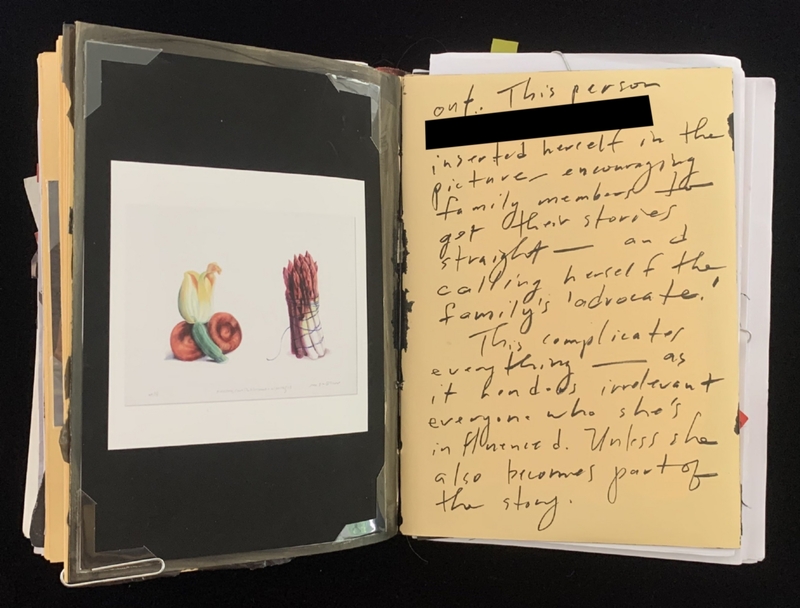 out. This person
inserted herself in the
picture encouraging
family members to
get their stories
straight — and
calling herself the
family's 'advocate.'
This complicates
everything — as
it renders irrelevant
everyone who she's
influenced. Unless she
also becomes part of
the story.